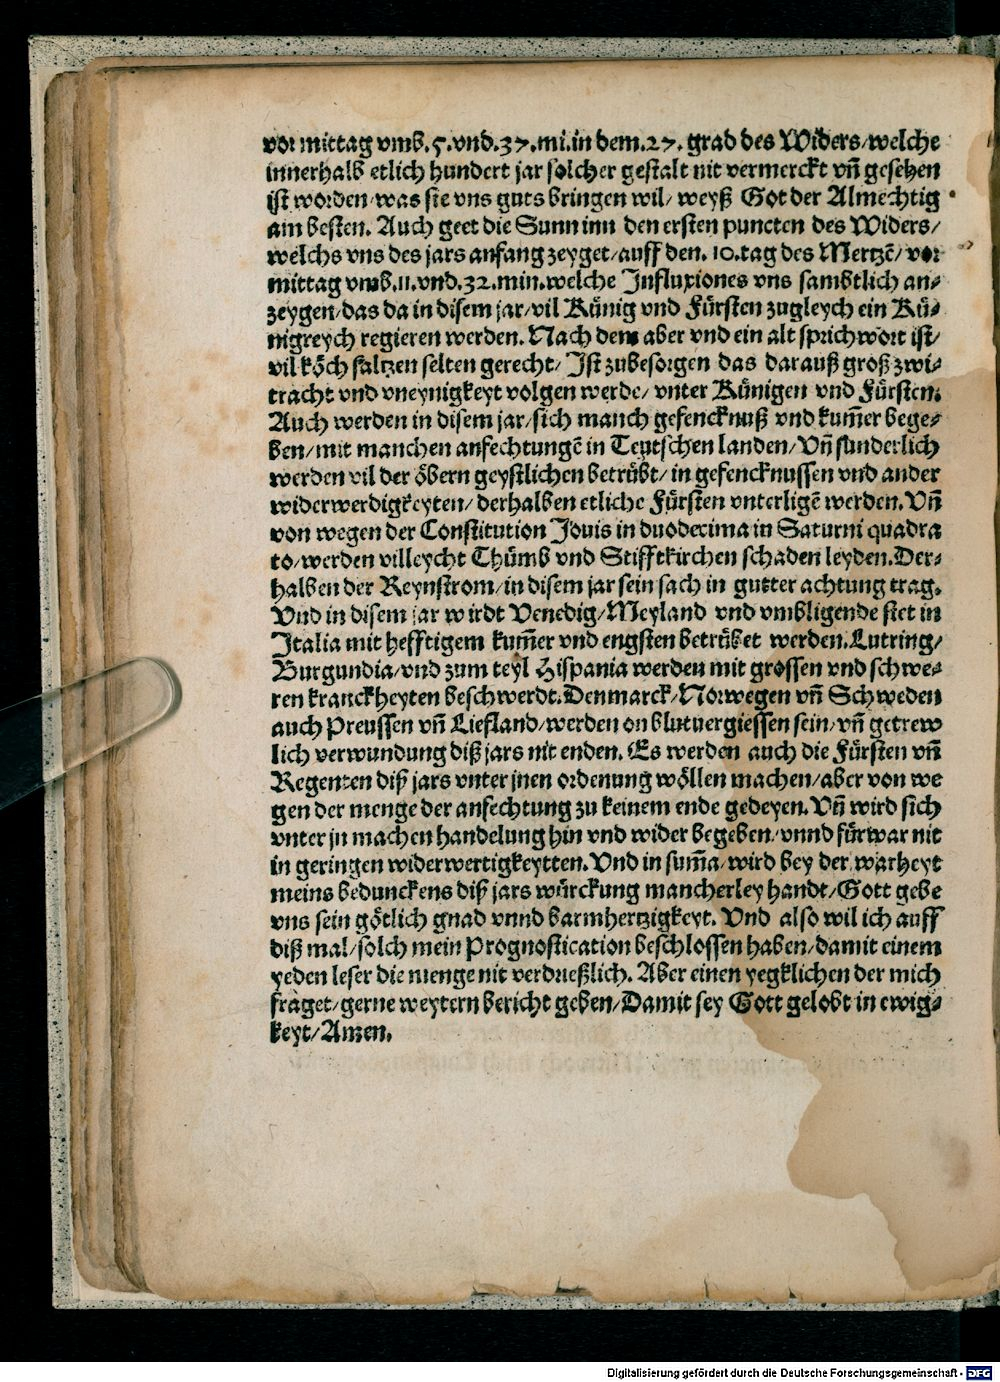 vor mittag vmb.5.vnd.37.mi.in dem.27.grad des Widers/welche
innerhalb etlich hundert jar solcher gestalt nit vermerckt vñ gesehen
ist worden/was sie vns guts bringen wil/ weyß Got der Almechtig
am besten. Auch geet die Sunn inn den ersten puncten des Widers/
welchs vns des jars anfang zeyget/auff den.10.tag des Mertzẽ/ vor
mittag vmb.11.vnd.32.min.welche Influxiones vns sambtlich an⸗
zeygen/das da in disem jar/vil Kůnig vnd Fůrsten zugleych ein Ků⸗
nigreych regieren werden. Nach dem aber vnd ein alt sprichwort ist/
vil kőch saltzen selten gerecht/ Ist zubesorgen das darauß groß zwi⸗
tracht vnd vneynigkeyt volgen werde/ vnter Kůnigen vnd Fůrsten.
Auch werden in disem jar/sich manch gefencknuß vnd kum̃er bege⸗
ben/mit manchen anfechtungẽ in Teutschen landen/Vñ sunderlich
werden vil der őbern geystlichen betrůbt/in gefencknussen vnd ander
widerwerdigkeyten/ derhalben etliche Fůrsten vnterligẽ werden. Vñ
von wegen der Constitution Jouis in duodecima in Saturni quadra
to/werden villeycht Thůmb vnd Stifftkirchen schaden leyden.Der⸗
halben der Reynstrom/in disem jar sein sach in gutter achtung trag.
Vnd in disem jar wirdt Venedig/Meyland vnd vmbligende stet in
Italia mit hefftigem kum̃er vnd engsten betrůbet werden.Lutring/
Burgundia/vnd zum teyl Hispania werden mit grossen vnd schwe⸗
ren kranckheyten beschwerdt.Denmarck/Norwegen vñ Schweden
auch Preussen vñ Liefland/werden on blutuergiessen sein/vñ getrew
lich verwundung diß jars nit enden. Es werden auch die Fůrsten vñ
Regenten diß jars vnter jnen ordenung wőllen machen/aber von we
gen der menge der anfechtung zu keinem ende gedeyen. Vñ wird sich
vnter jn machen handelung hin vnd wider begeben/vnnd fůrwar nit
in geringen widerwertigkeytten. Vnd in sum̃a/wird bey der warheyt
meins bedunckens diß jars wůrckung mancherley handt/Gott gebe
vns sein gőtlich gnad vnnd barmhertzigkeyt. Vnd also wil ich auff
diß mal/solch mein Prognostication beschlossen haben/damit einem
yeden leser die menge nit verdrueßlich. Aber einen yegklichen der mich
fraget/gerne weytern bericht geben/Damit sey Gott gelobt in ewig⸗
keyt/Amen.
Digitalisierung gefördert durch die Deutsche Forschungsgemeinschaft - DFG